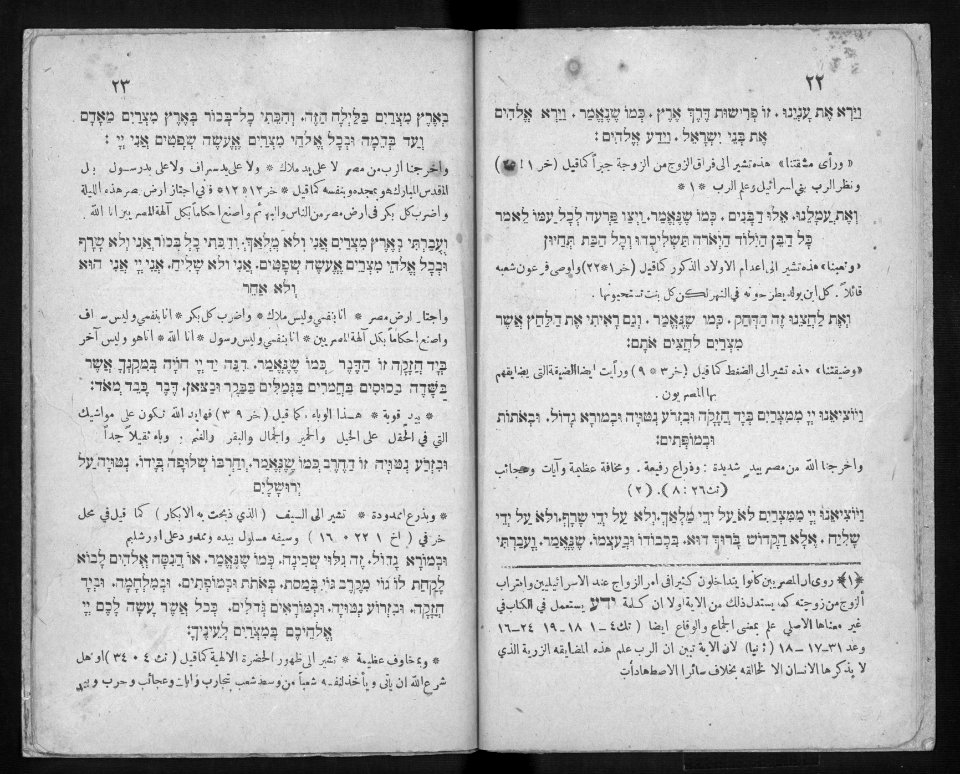 ٢٢
וַיַּרְא אֶת עָנְיֵנוּ. זוֹ פְּרִישׁוּת דֶּרֶךְ אֶרֶץ. כְּמוֹ שֶׁנֶּאֱמַר. וַיַּרְא אֱלֹהִים
אֶת בְּנֵי יִשְׂרָאֵל. וַיֵּדַע אֱלֹהִים:
« ورأى مشقتنا » هذه تشير الى فراق الزوج من الزوجة جبراً كما قيل ( خر ١ :
ونظر الرب بني اسرائيل وعلم الرب * ١ *
וְאֶת עֲמָלֵנוּ. אֵלּוּ הַבָּנִים. כְּמוֹ שֶׁנֶּאֱמַר. וַיְצַו פַּרְעֹה לְכָל עַמּוֹ לֵאמֹר
כָּל הַבֵּן הַיִּלּוֹד הַיְאֹרָה תַּשְׁלִיכֻהוּ וְכָל הַבַּת תְּחַיּוּן
« وتعبنا » هذه تشير الى اعدام الاولاد الذكور كما قيل (خر ١*٢٢) واوصى فرعون شعبه
قائلاً . كل ابن يولد يطرحونه في النهر لكن كل بنت تستحيونها .
וְאֶת לַחֲצֵנוּ זֶה הַדְּחַק. כְּמוֹ שֶׁנֶּאֱמַר. וְגַם רָאִיתִי אֶת הַלַּחַץ אֲשֶׁר
מִצְרַיִם לֹחֲצִים אֹתָם:
«وضيقتنا» هذه تشير الى الضغط كما قيل ( خر ٣ * ٩ ) ورأيت ايضا الضيقة التي يضايقهم
بها المصريون .
וַיּוֹצִיאֵנוּ יְיָ מִמִּצְרַיִם בְּיָד חֲזָקָה וּבִזְרֹעַ נְטוּיָה וּבְמוֹרָא גָּדוֹל. וּבְאֹתוֹת
וּבְמוֹפְתִים:
واخرجنا الله من مصر بيد شديدة : وذراع رفيعة . ومخافة عظيمة وآيات وعجائب
(تث ٢٦ : ٨). (٢)
וַיּוֹצִיאֵנוּ יְיָ מִמִּצְרַיִם לֹא עַל יְדֵי מַלְאָךְ. וְלֹא עַל יְדֵי שָׂרָף. וְלֹא עַל יְדֵי
שָׁלִיחַ. אֶלָּא הַקָּדוֹשׁ בָּרוּךְ הוּא. בִּכְבוֹדוֹ וּבְעַצְמוֹ. שֶׁנֶּאֱמַר. וְעָבַרְתִּי
﴿١﴾ روى ان المصريين كانوا يتداخلون كثيرا في امر الزواج عند الاسرائيليين واحتراب
الزوج من زوجته كم يستدل ذلك من الاية اولا ان كلمة ידע يستعمل في الكتاب في
غير معناها الاصلي علم بمعنى الجماع والوقاع ايضا ( تك ٤ــ١ ١٨ــ١٩ ٢٤ــ١٦
وعد ٣١ــ١٧ــ١٨ ) ثانيا ) لان الاية تبين ان الرب علم هذه المضايقه الزرية الذي
لا يذكرها الانسان الا لخالقه بخلاف سائر الاضطهادات
٢٣
בְאֶרֶץ מִצְרַיִם בַּלַּיְלָה הַזֶּה. וְהִכֵּתִי כָל־בְּכוֹר בְּאֶרֶץ מִצְרַיִם מֵאָדָם
וְעַד בְּהֵמָה וּבְכָל אֱלֹהֵי מִצְרַיִם אֶעֱשֶׂה שְׁפָטִים אֲנִי יְיָ :
واخرجنا الرب من مصر لا على يد ملاك * ولا على يد سراف ولا على يد رسول بل
المقدس المبارك هو بمجده وبنفسه كما قيل * خر ١٢ * ١٢ * فاني اجتاز ارض مصر هذه الليلة
واضرب كل بكر في ارض مصر من الناس والبهائم واصنع احكاماً بكل آلهة المصريين انا الله
וְעָבַרְתִּי בְאֶרֶץ מִצְרַיִם אֲנִי וְלֹא מַלְאָךְ. וְהִכֵּתִי כָל בְּכוֹר אֲנִי וְלֹא שָׂרָף
וּבְכָל אֱלֹהֵי מִצְרַיִם אֶעֱשֶׂה שְׁפָטִים. אֲנִי וְלֹא שָׁלִיחַ. אֲנִי יְיָ אֲנִי הוּא
וְלֹא אַחֵר
واجتاز ارض مصر * انا بنفسي وليس ملاك * واضرب كل بكر * انا بنفسي وليس سراف
واصنع احكاماً بكل آلهة المصريين * انا بنفسي وليس رسول * انا الله * انا هو وليس آخر
בְּיָד חֲזָקָה זוֹ הַדֶּבֶר כְּמוֹ שֶׁנֶּאֱמַר. הִנֵּה יַד יְיָ הוֹיָה בְּמִקְנְךָ אֲשֶׁר
בַּשָּׂדֶה בַּסּוּסִים בַּחֲמֹרִים בַּגְּמַלִּים בַּבָּקָר וּבַצֹּאן. דֶּבֶר כָּבֵד מְאֹד:
* بيد قوية * هذا الوباء. كما قيل ( خر ٩ ٣ ) فها يد الله تكون على مواشيك
التي في الحقل على الخيل والحمير والجمال والبقر والغنم : وباء ثقيلاً جداً
וּבִזְרֹעַ נְטוּיָה זוֹ הַחֶרֶב כְּמוֹ שֶׁנֶּאֱמַר. וְחַרְבּוֹ שְׁלוּפָה בְּיָדוֹ. נְטוּיָה עַל
יְרוּשָׁלָיִם
* وبذرع ممدودة * تشير الى السيف ( الذي ذبحت به الابكار ) كما قيل في محل
خر في ( اخ ١ ٢٢ ٠ ١٦ ) وسيفه مسلول بيده وممدود على اورشليم
וּבְמוֹרָא גָּדוֹל. זֶה גִּלּוּי שְׁכִינָה. כְּמוֹ שֶׁנֶּאֱמַר. אוֹ הֲנִסָּה אֱלֹהִים לָבוֹא
לָקַחַת לוֹ גוֹי מִקֶּרֶב גּוֹי בְּמַסֹּת. בְּאֹתֹת וּבְמוֹפְתִים. וּבְמִלְחָמָה. וּבְיָד
חֲזָקָה. וּבִזְרוֹעַ נְטוּיָה. וּבְמוֹרָאִים גְּדֹלִים. כְּכֹל אֲשֶׁר עָשָׂה לָכֶם יְיָ
אֱלֹהֵיכֶם בְּמִצְרַיִם לְעֵינֶיךָ:
* وبمخاوف عظيمة * تشير الى ظهور الحضرة الالهية كما قيل ( تث ٤ ٠ ٣٤ ) او هل
شرع الله ان يأتي ويأخذ لنفسه شعباً من وسط شعب بتجارب وآيات وعجائب وحرب وبيد